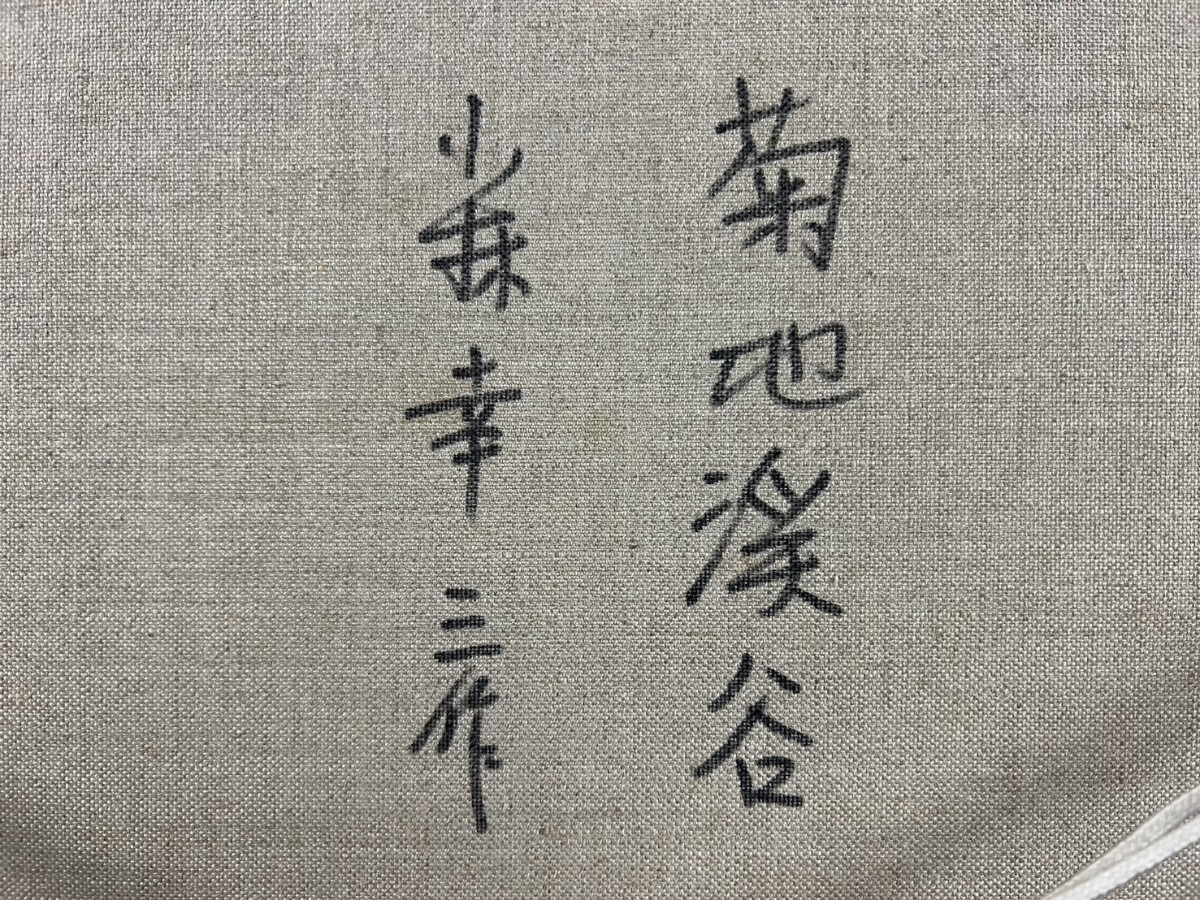 菊地渓谷
小森幸三作